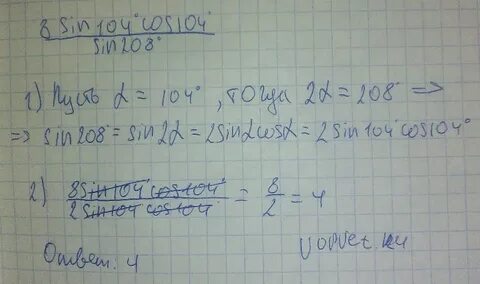 8 sin104° cos104°
sin208°
1) Пусть α = 104°, тогда 2α = 208° =>
=> sin208° = sin2α = 2sinαcosα = 2sin104°cos104°
2) 8sin104° cos104° / 2sin104 cos104 = 8/2 = 4
Ответ: 4